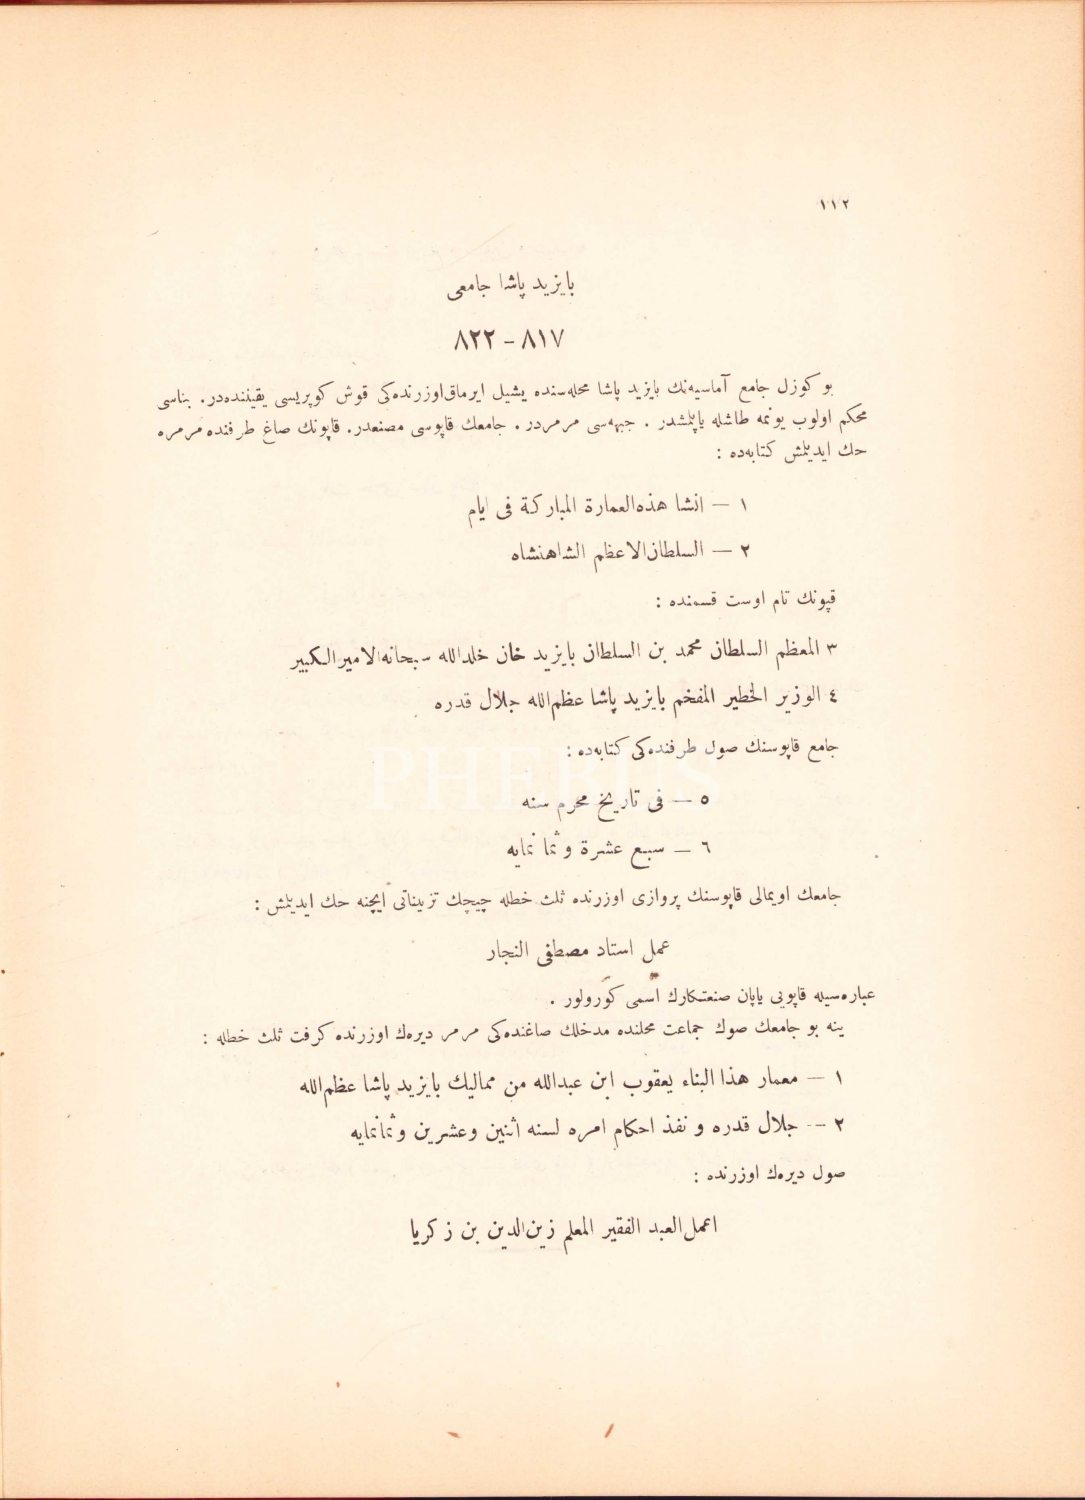 ١١٢
بايزيد پاشا جامعى
٨١٧ - ٨٢٢
بو كوزل جامع آماسيه‌نك بايزيد پاشا محله‌سنده يشيل ايرماق اوزرنده‌كى قوش كوپريسى يقيننده‌در. بناسى
محكم اولوب يونمه طاشله ياپلمشدر . جبهه‌سى مرمردر . جامعك قاپوسى مصنعدر. قاپونك صاغ طرفنده مرمره
حك ايديلمش كتابه‌ده :
١ — انشا هذه العمارة المباركة فى ايام
٢ — السلطان الاعظم الشاهنشاه
قپونك تام اوست قسمنده :
٣ المعظم السلطان محمد بن السلطان بايزيد خان خلدالله سبحانه الامير الكبير
٤ الوزير الخطير المفخم بايزيد پاشا عظم‌الله جلال قدره
جامع قاپوسنك صول طرفنده‌كى كتابه‌ده :
PHEBUS
٥ — فى تاريخ محرم سنه
٦ — سبع عشرة و ثما نمايه
جامعك اويمالى قاپوسنك پروازى اوزرنده ثلث خطله چيچك تزييناتى ايچنه حك ايديلمش :
عمل استاد مصطفى النجار
عباره‌سيله قاپويى ياپان صنعتكارك اسمى كورولور .
ينه بو جامعك صوك جماعت محلنده مدخلك صاغنده‌كى مرمر ديرهك اوزرنده كرفت ثلث خطله :
١ — معمار هذا البناء يعقوب ابن عبدالله من مماليك بايزيد پاشا عظم‌الله
٢ — جلال قدره و نفذ احكام امره لسنه اثنين وعشرين وثمانمايه
صول ديرهك اوزرنده :
اعمل العبد الفقير المعلم زين‌الدين بن زكريا